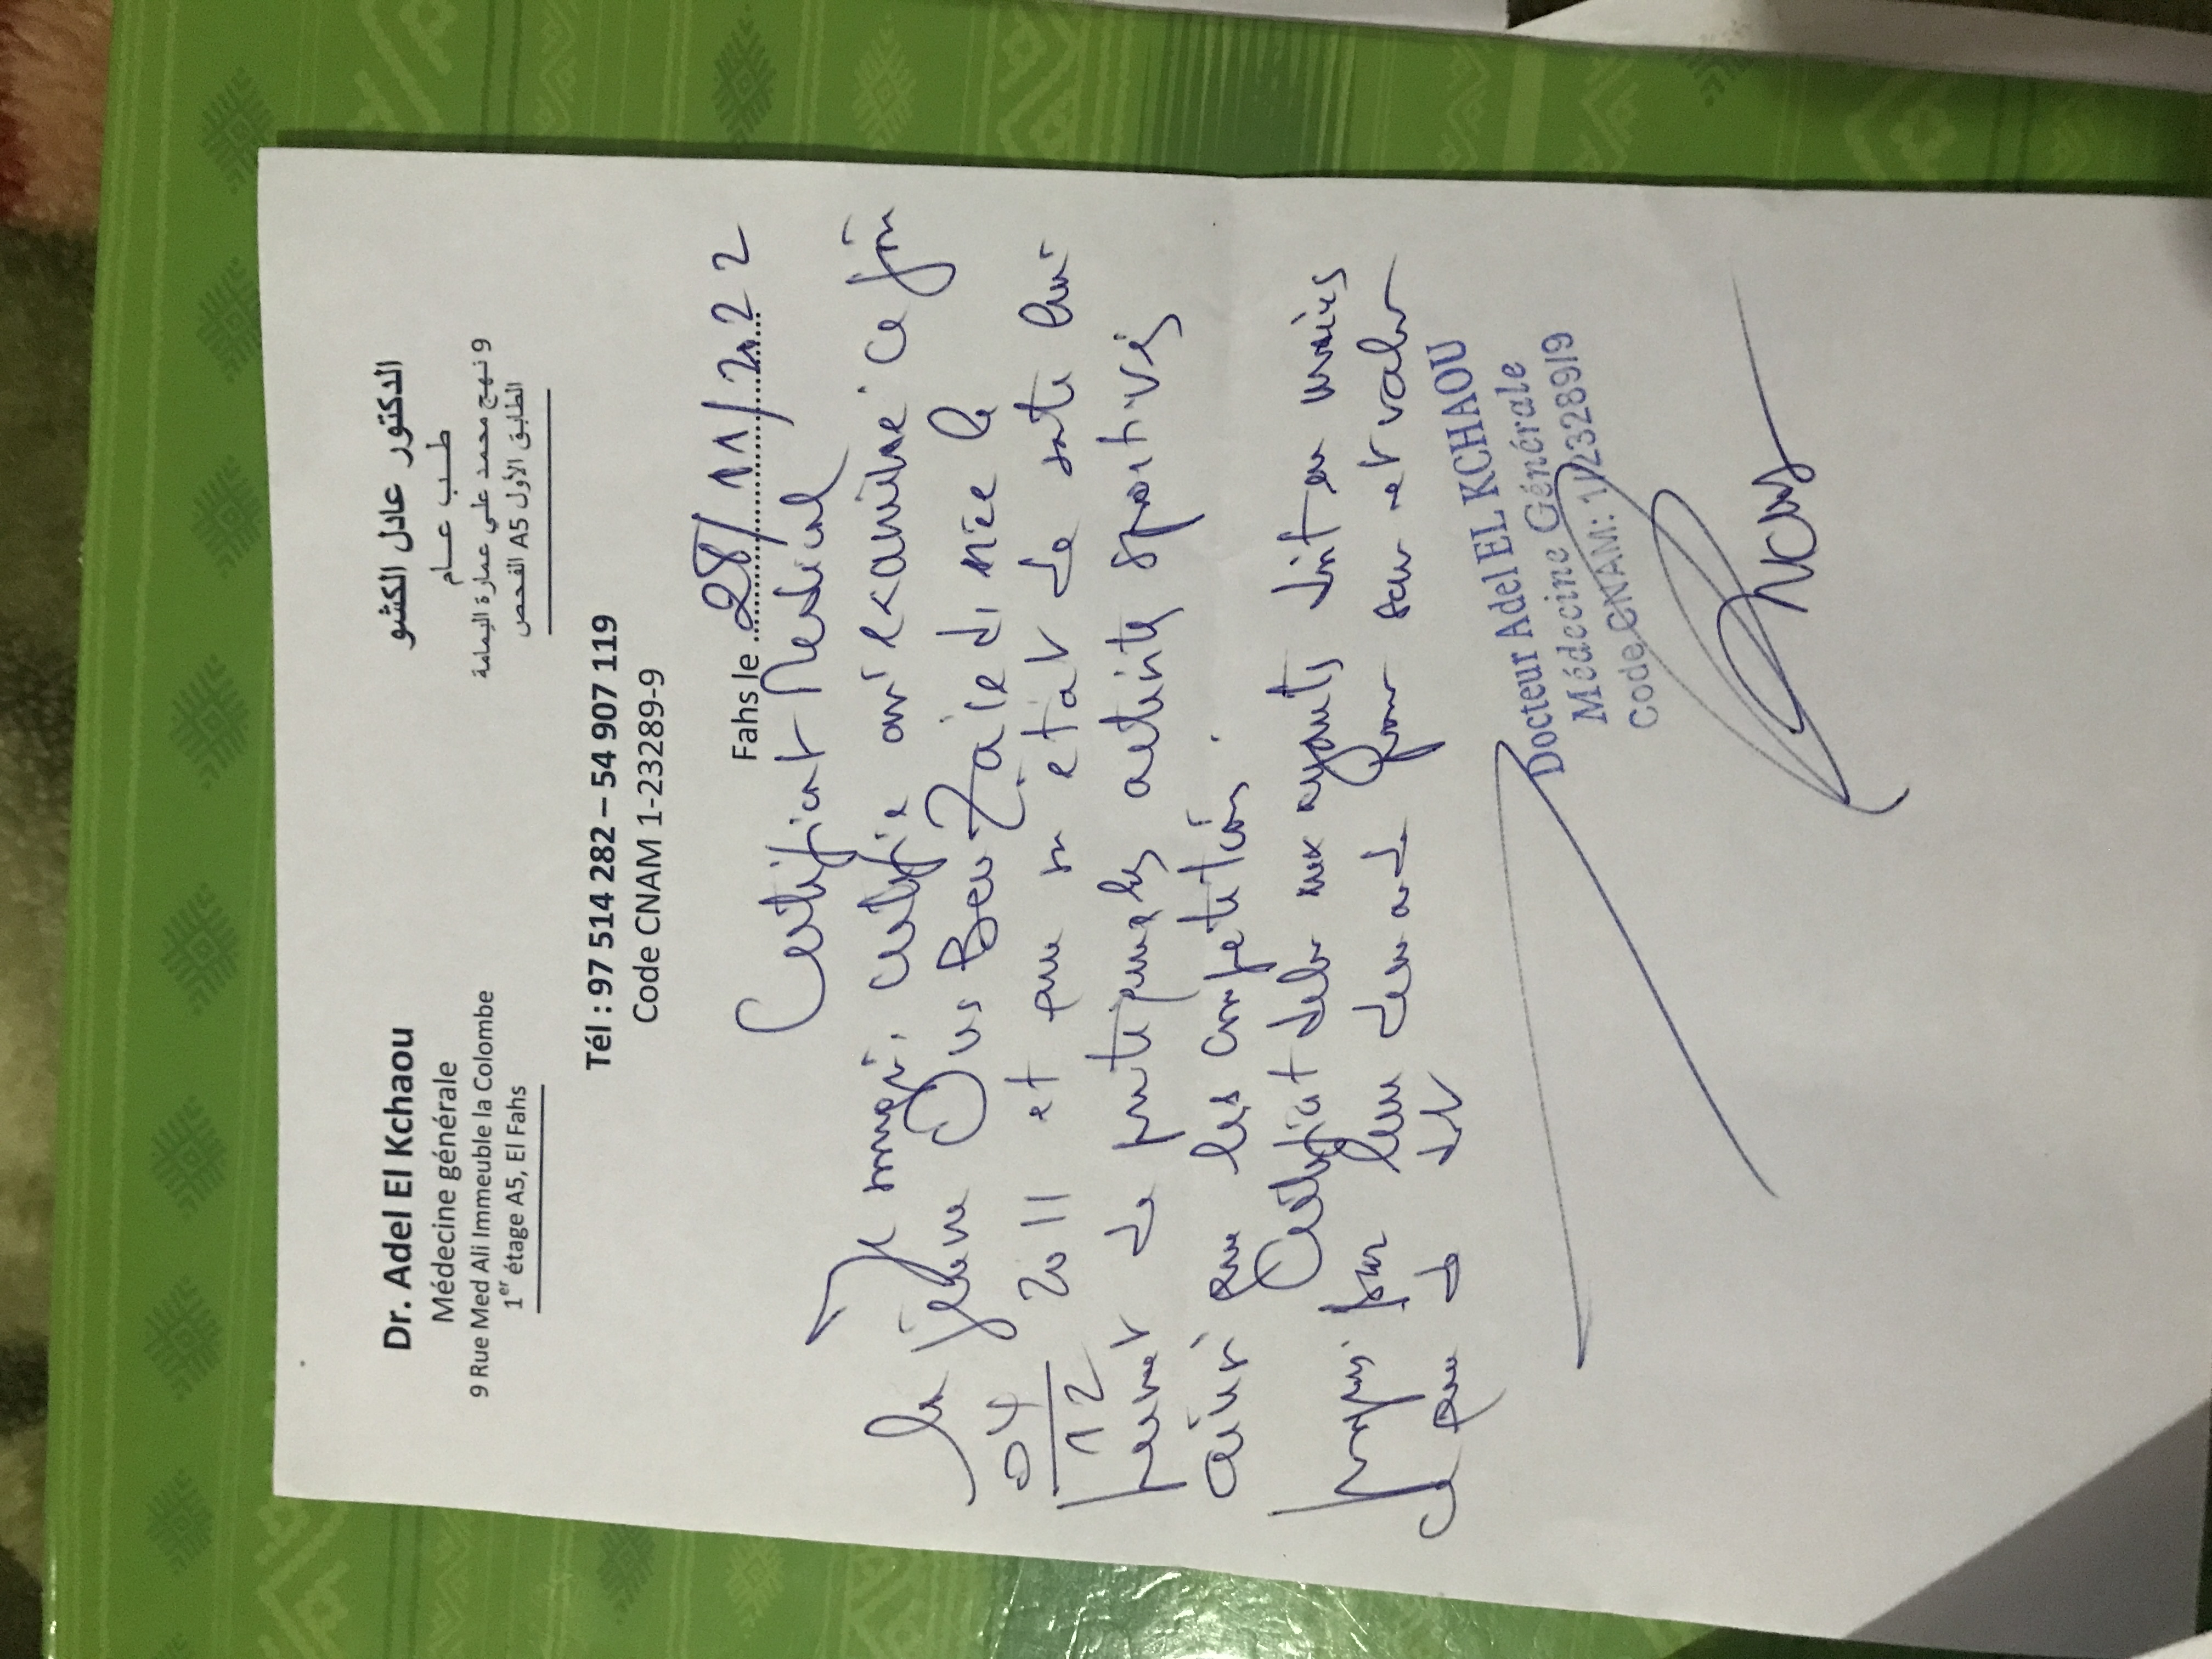 Dr. Adel El Kchaou
Médecine générale
9 Rue Med Ali Immeuble la Colombe
1er étage A5, El Fahs
الدكتور عادل الكشو
طب عام
9 نهج محمد علي عمارة اليمامة
الطابق الأول A5 الفحص
Tél : 97 514 282 – 54 907 119
Code CNAM 1-23289-9
Fahs le 28/11/2022
Certificat Medical
Je certifie avoir examiné ce jour
la jeune Ben Zaiedi née le
04/12 2011 et que son etat de santé lui
permet de pratiquer les activités sportives
ainsi que les competitions.
Certificat delivré aux ayants droit en mains
propres pour leur demande pour servir et valoir
ce que de droit
Docteur Adel EL KCHAOU
Médecine Générale
Code CNAM: 1/23289/9